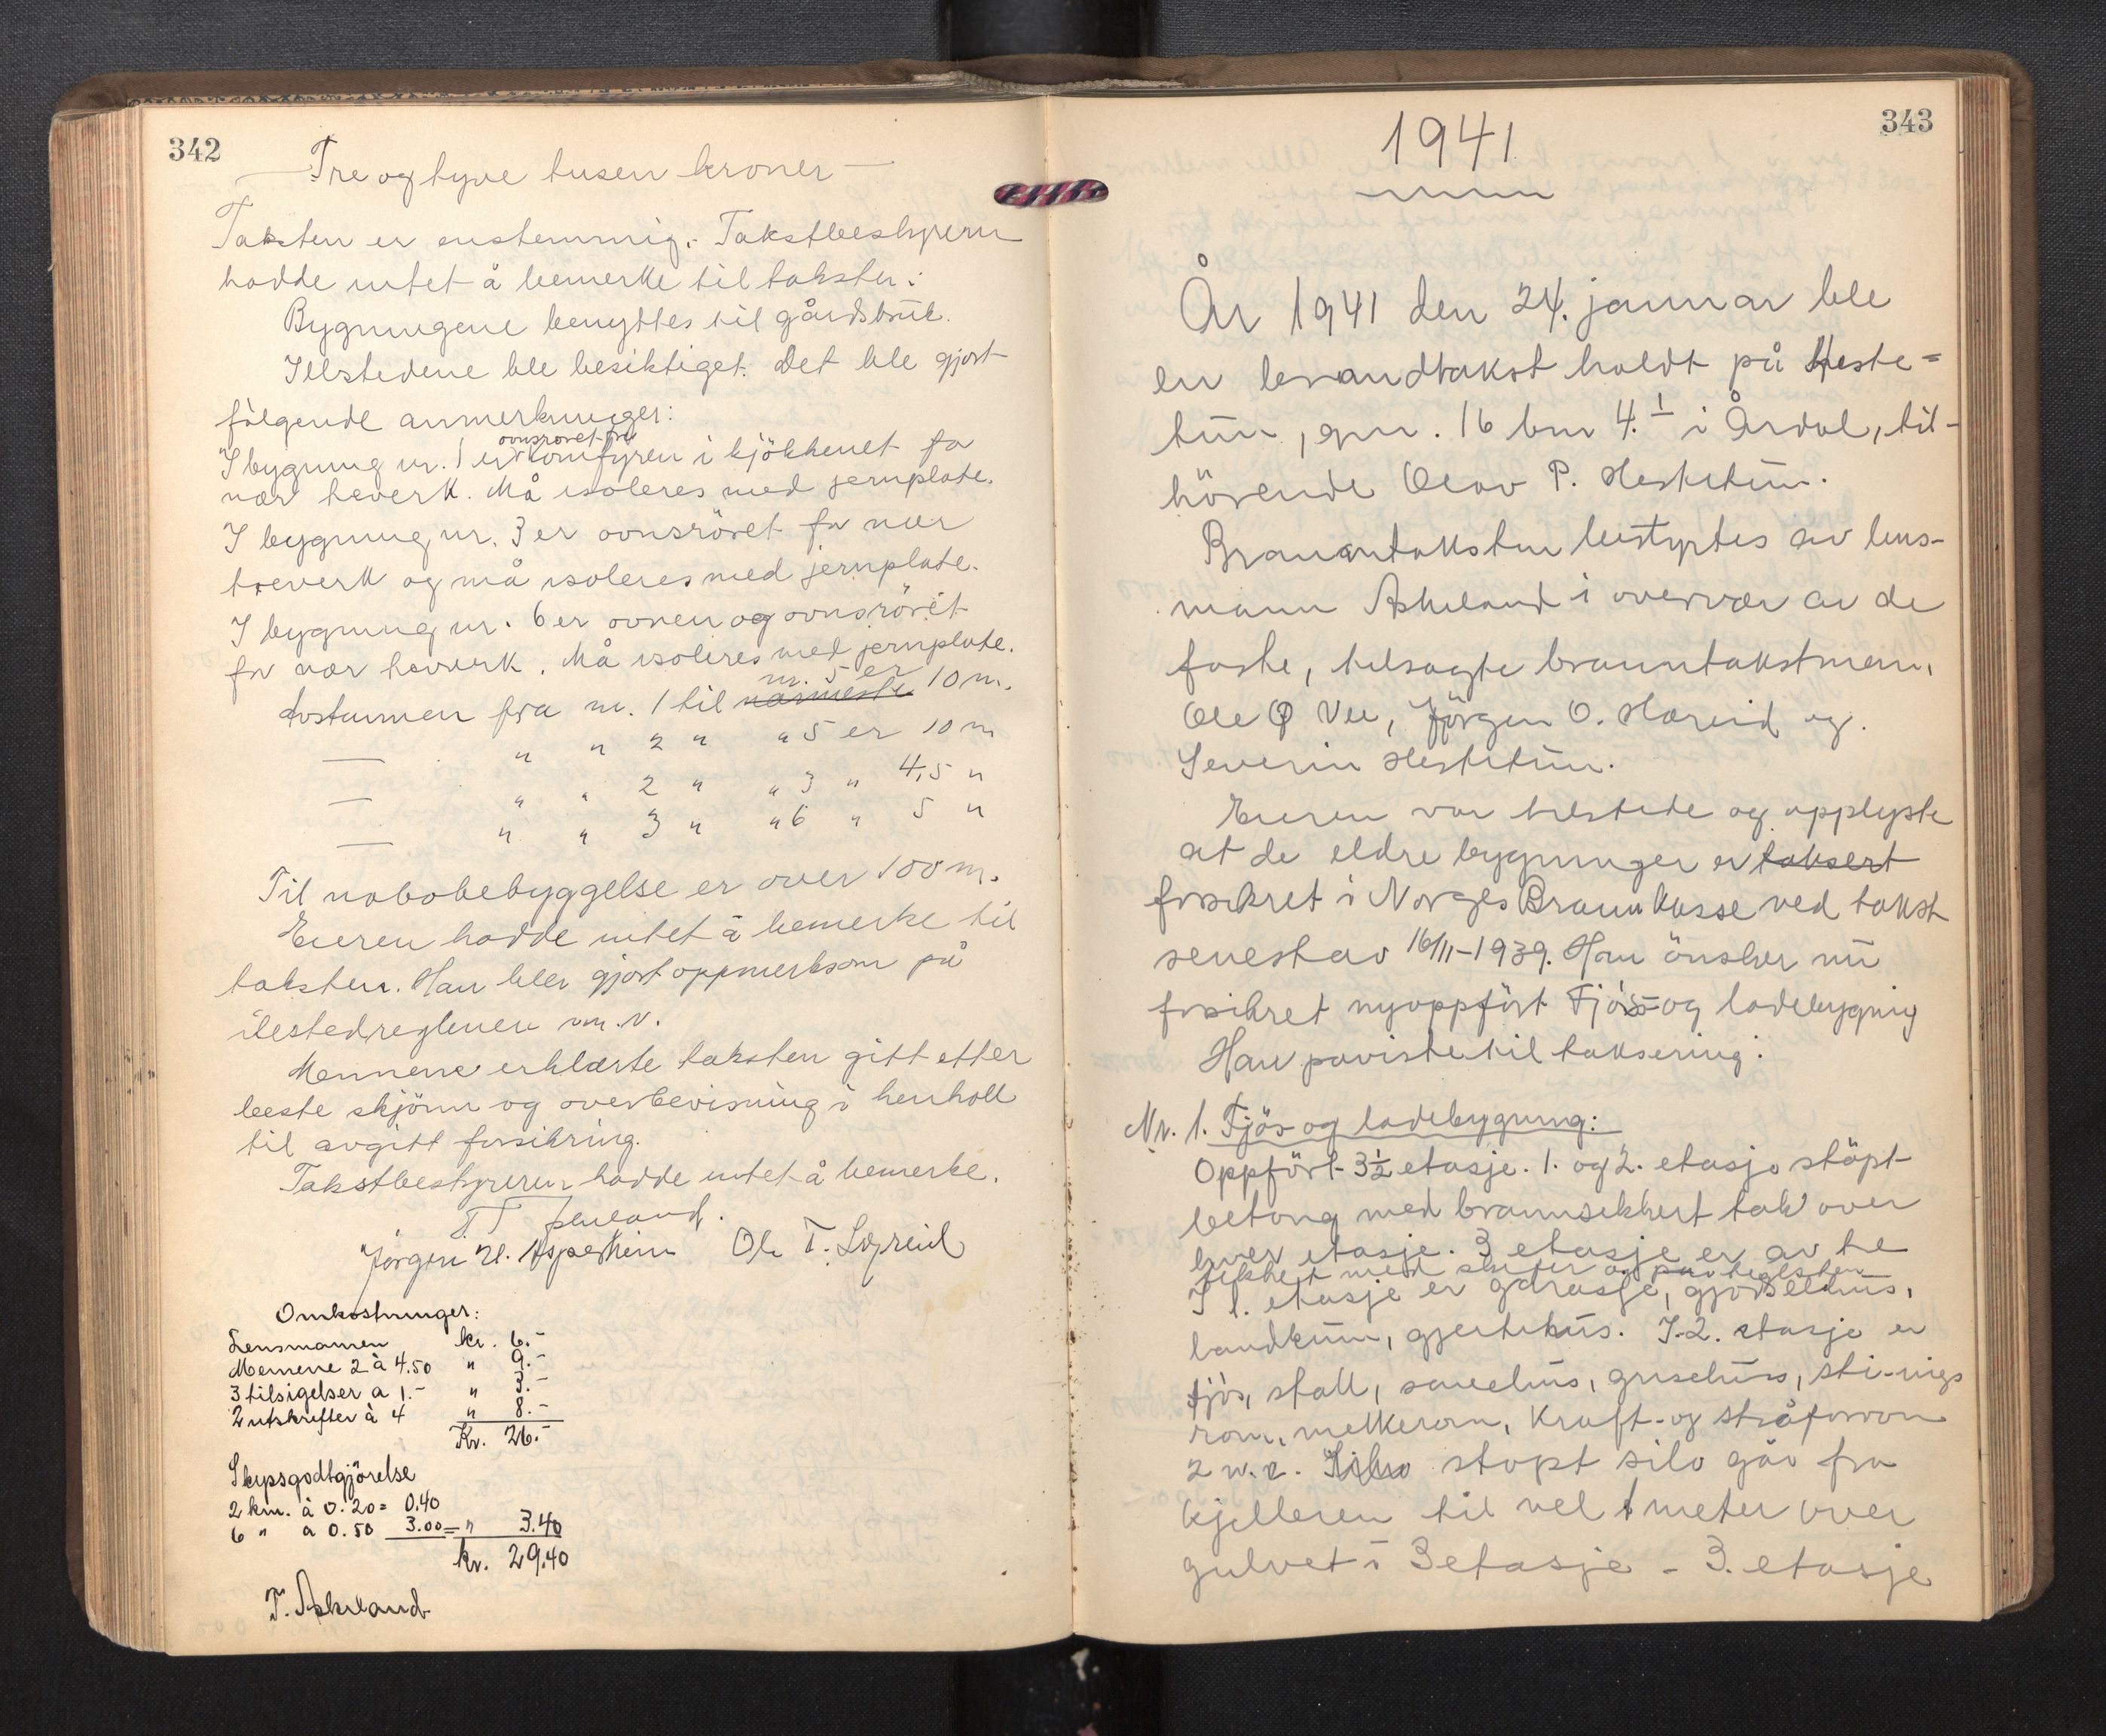 342
— Tre og tyve tusen kroner —
Taksten er enstemmig. Takstbestyreren
hadde intet å bemerke til taksten.
Bygningene benyttes til gårdsbruk.
Ildstedene ble besiktiget. Det ble gjort
følgende anmerkninger:
ovnsrøret fra
I bygning nr. 1 er komfyren i kjøkkenet for
nær treverk. Må isoleres med jernplate.
I bygning nr. 3 er ovnsröret for nær
treverk og må isoleres med jernplate.
I bygning nr. 6 er ovnen og ovnsröret
for nær treverk. Må isoleres med jernplate.
nr. 5 er
Avstannen fra nr. 1 til nærmeste 10 m.
— " " 2 " " 5 er 10 m
— " " 2 " " 3 " 4,5 "
— " " 3 " " 6 " 5 "
Til nabobebyggelse er over 100 m.
Eieren hadde intet å bemerke til
taksten. Han blev gjort oppmerksom på
ildstedreglenen m.v.
Mennene erklærte taksten gitt etter
beste skjønn og overbevisning i henhold
til avgitt forsikring.
Takstbestyreren hadde intet å bemerke.
Jørgen H. Asperheim Ole T. Lægreid
Omkostninger:
Lensmannen kr. 6.-
Mennene 2 à 4.50 " 9.-
3 tilsigelser a 1.- " 3.-
2 utskrifter à 4 " 8.-
Kr. 26.-
Skyssgodtgjörelse
2 km. à 0.20 = 0.40
6 " a 0.50 3.00 = " 3.40
kr. 29.40
T. Askeland
343
1941
År 1941 den 24. januar ble
en branntakst holdt på Heste-
tun, gnr. 16 bnr 4.1 i Årdal, til-
hörende Olav P. Hestetun.
Branntaksten bestyrtes av lens-
mann Askeland i overvær av de
faste, tilsagte branntakstmenn,
Ole O Vee, Jörgen O. Hæreid og
Severin Hestetun.
Eieren var tilstede og opplyste
at de eldre bygninger er taksert
forsikret i Norges Brannkasse ved takst
senest av 16/11-1939. Han önsker nu
forsikret nyoppfört Fjös- og ladebygnig
Han paviste til taksering:
Nr. 1. Fjös og ladebygning:
Oppfört 3½ etasje. 1. og 2. etasje stöpt
betong med brannsikkert tak over
hver etasje. 3 etasje er av tre
tekket med skifer og teglsten
I 1. etasje er garasje, gjödselhus,
landkum, gjeitehus. I 2. etasje er
fjös, stall, sauehus, grisehus,
rom, melkerom, Kraft- og stråforrom
2 w.c. Silo stöpt silo går fra
kjelleren til vel 1 meter over
gulvet i 3 etasje - 3. etasje